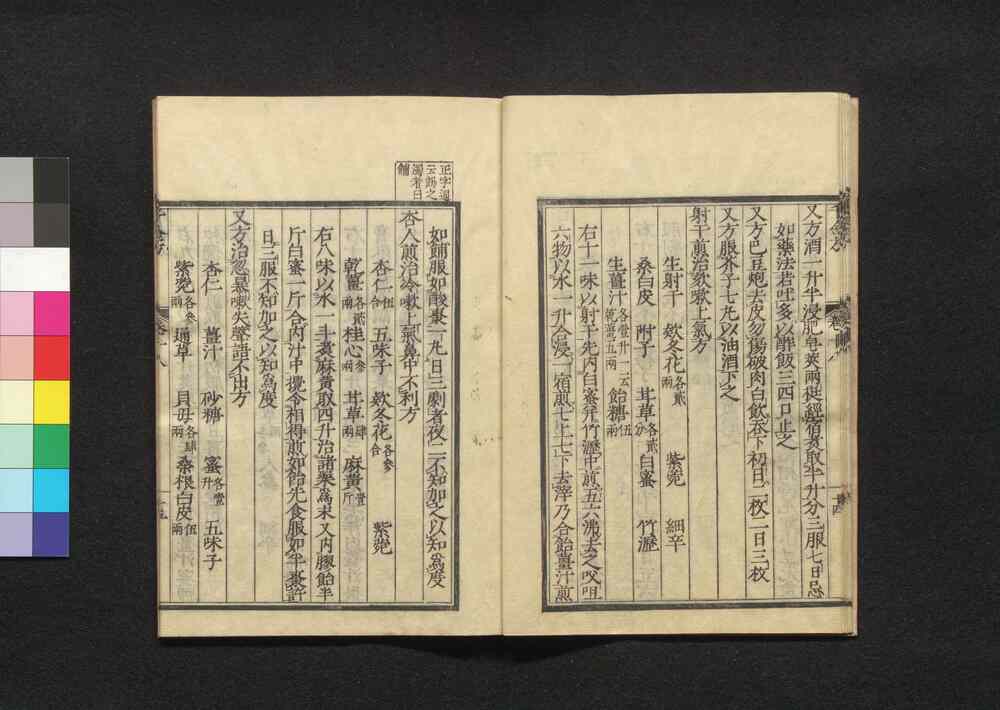 又方酒一升半浸肥皁莢兩挺經宿煑取半升分三服七日忌
如藥法若吐多以酢飯三四口止之
又方巴豆炮去皮勿傷破肉白飲吞下初日二枚二日三枚
又方服芥子七九以油酒下之
射干煎治欬嗽上氣方
生射干 欸冬花各貳兩 紫菀 細辛
桑白皮 附子 甘草各貳分 白蜜 竹瀝
生薑汁各壹升一云乾薑五兩 飴糖伍兩
右十一味以射干先內白蜜并竹瀝中煎五六沸去之㕮咀
六物以水一升合浸一宿煎七上七下去滓乃合飴薑汁煎
如餔服如酸棗一丸日三劇者夜二不知加之以知爲度
正字通
云餳之
濁者曰
餔
杏人煎治冷嗽上氣鼻中不利方
杏仁伍合 五味子 欸冬花各參合 紫菀
乾薑各貳兩 桂心參兩 甘草肆兩 麻黃壹斤
右八味以水一斗煑麻黃取四升治諸藥爲末又內膠飴半
斤白蜜一斤合內汁中攪令相得煎如飴先食服如半棗許
日三服不知加之以知爲度
又方治忽暴嗽失聲語不出方
杏仁 薑汁 砂糖 蜜各壹升 五味子
紫菀各參兩 通草 貝母各肆兩 桑根白皮伍兩